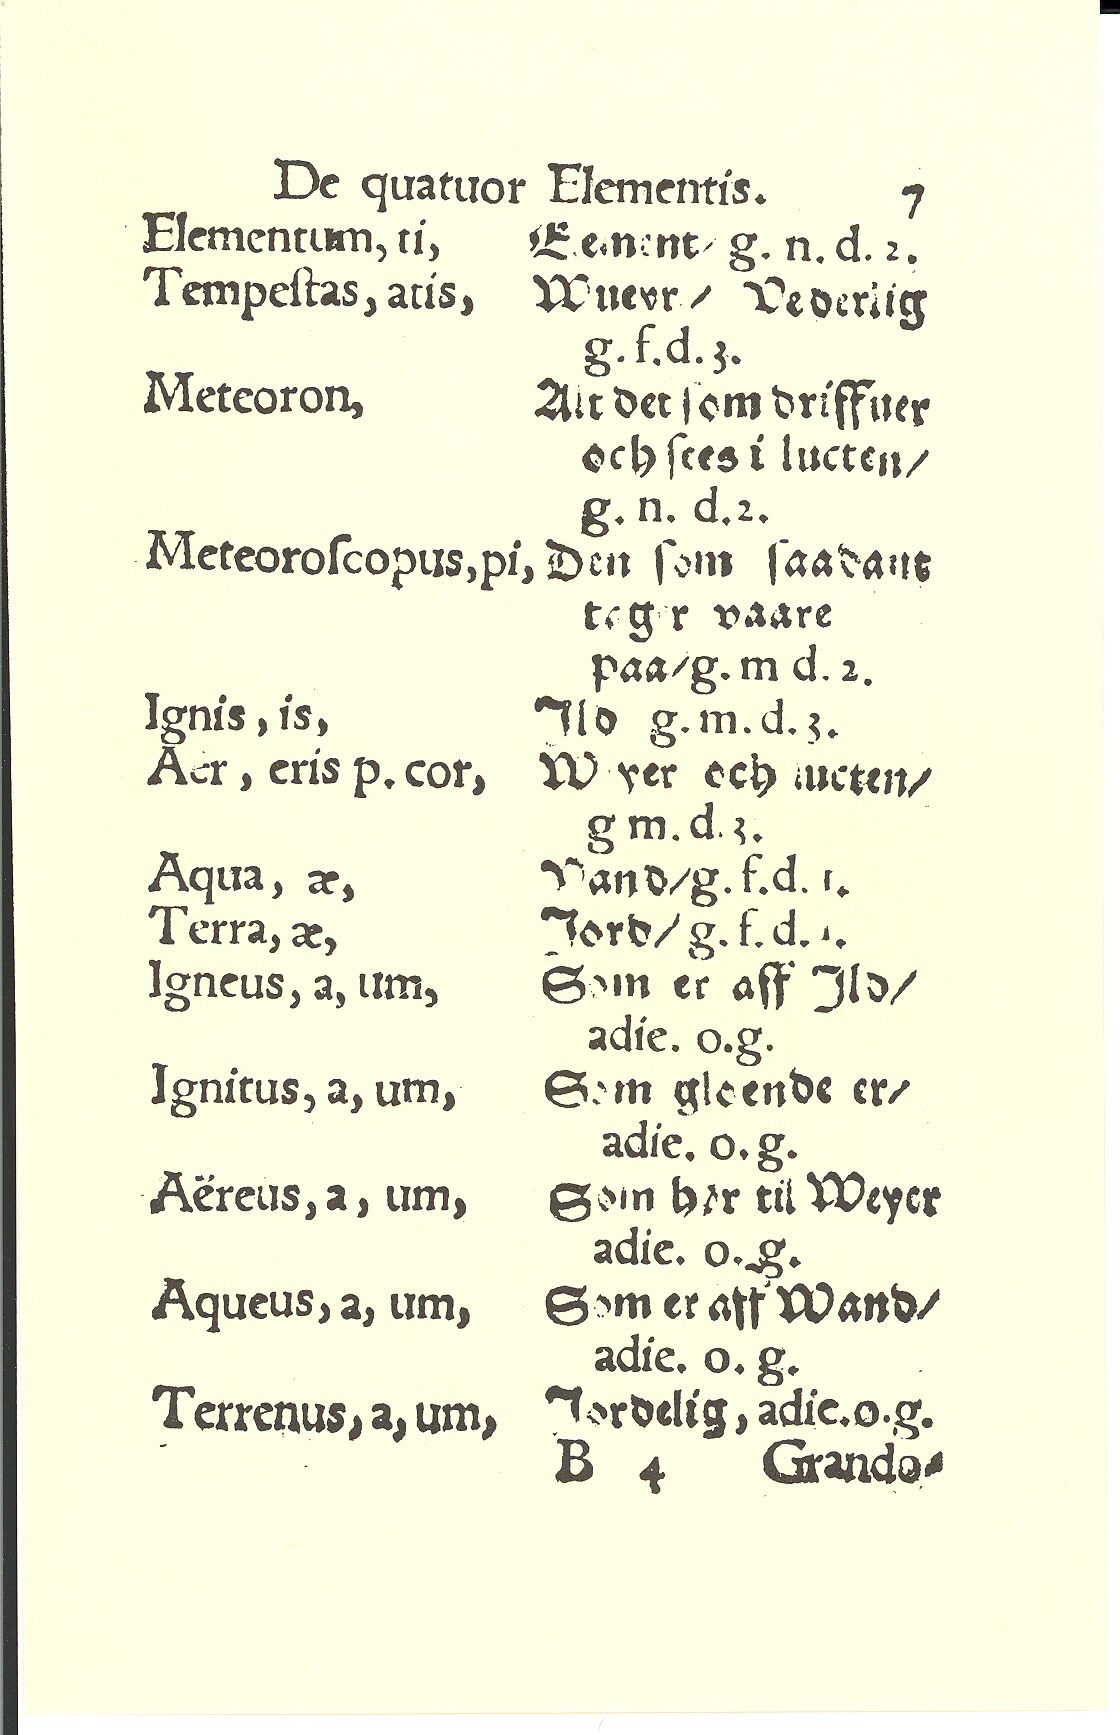 De quatuor Elementis. 7
Elementum, ti, g. n. d. 2.
Tempeſtas, atis, Wueyr / Vederliig
g. f. d. 3.
Meteoron, Alt det ſom driffuer
och ſees i lucten/
g. n. d. 2.
Meteoroſcopus, pi, Den ſom ſaadant
vaare
paa/ g. m d. 2.
Ignis, is, Ild g. m. d. 3.
Aer, eris p. cor, och lucten/
g m. d. 3.
Aqua, æ, Vand/ g. f. d. 1.
Terra, æ, Jord/ g. f. d. 1.
Igneus, a, um, Som er aff Jld/
adie. o. g.
Ignitus, a, um, Som gloende er/
adie. o. g.
Aëreus, a, um, Som hør til Weyer
adie. o. g.
Aqueus, a, um, Som er aff Wand/
adie. o. g.
Terrenus, a, um, Jordelig, adie. o. g.
B 4 Grando-